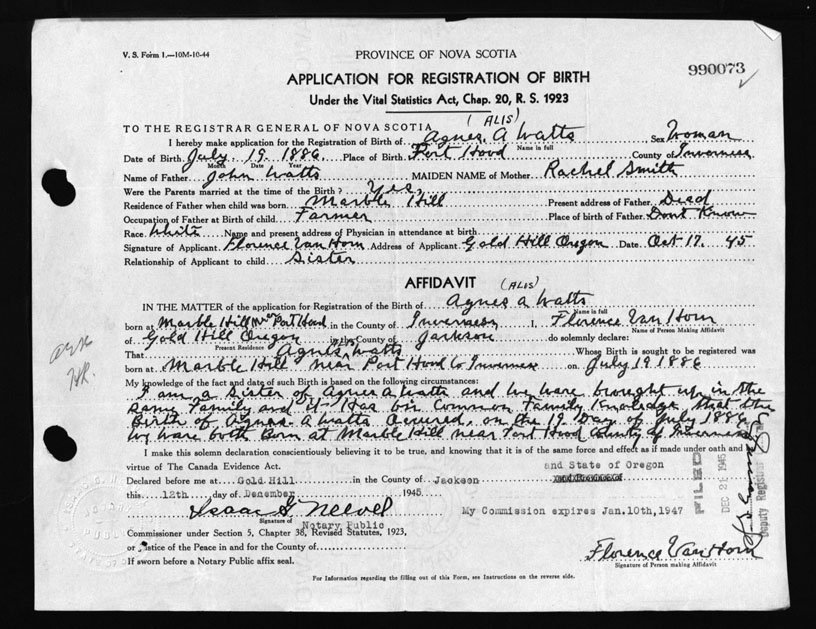 V. S. Form 1.—10M-10-44
PROVINCE OF NOVA SCOTIA
990073
APPLICATION FOR REGISTRATION OF BIRTH
Under the Vital Statistics Act, Chap. 20, R. S. 1923
(ALIS)
TO THE REGISTRAR GENERAL OF NOVA SCOTIA
I hereby make application for the Registration of Birth of Agnes. A Watts Sex Woman
Name in full
Date of Birth July 19 1886 Place of Birth Port Hood County of Inverness
Month Date Year
Name of Father John Watts MAIDEN NAME of Mother Rachel Smith
Were the Parents married at the time of the Birth? Yes
Residence of Father when child was born Marble Hill Present address of Father Died
Occupation of Father at Birth of child Farmer Place of birth of Father Dont Know
Race White Name and present address of Physician in attendance at birth
Signature of Applicant Florence Van Horn Address of Applicant Gold Hill Oregon Date Oct 17. 45
Relationship of Applicant to child Sister
AFFIDAVIT
(ALIS)
IN THE MATTER of the application for Registration of the Birth of Agnes A Watts
Name in full
born at Marble Hill Nr Port Hood in the County of Inverness I, Florence Van Horn
Name of Person Making Affidavit
of Gold Hill Oregon in the County of Jackson do solemnly declare:
Present Residence
That Agnes Watts Whose Birth is sought to be registered was
born at Marble Hill near Port Hood Co Inverness on July 19 1886
My knowledge of the fact and date of such Birth is based on the following circumstances:
I am a sister of Agnes A Watts and we ware brought up in the
Same Family and it Has bin Common Family Knowledge, that the
Birth of Agnes. A Watts Occured, on the 19 Day of July 1886
We ware both Born at Marble Hill near Port Hood County of Inverness
I make this solemn declaration conscientiously believing it to be true, and knowing that it is of the same force and effect as if made under oath and by
virtue of The Canada Evidence Act.
and State of Oregon
Declared before me at Gold Hill in the County of Jackson
this 12th day of December 1945
Isaac G Neevel My Commission expires Jan.10th,1947
Signature of
Notary Public
Commissioner under Section 5, Chapter 38, Revised Statutes, 1923,
or Justice of the Peace in and for the County of
If sworn before a Notary Public affix seal.
Florence Van Horn
Signature of Person making Affidavit
For Information regarding the filling out of this Form, see Instructions on the reverse side.
FILED
DEC 26 1945
Deputy Registrar